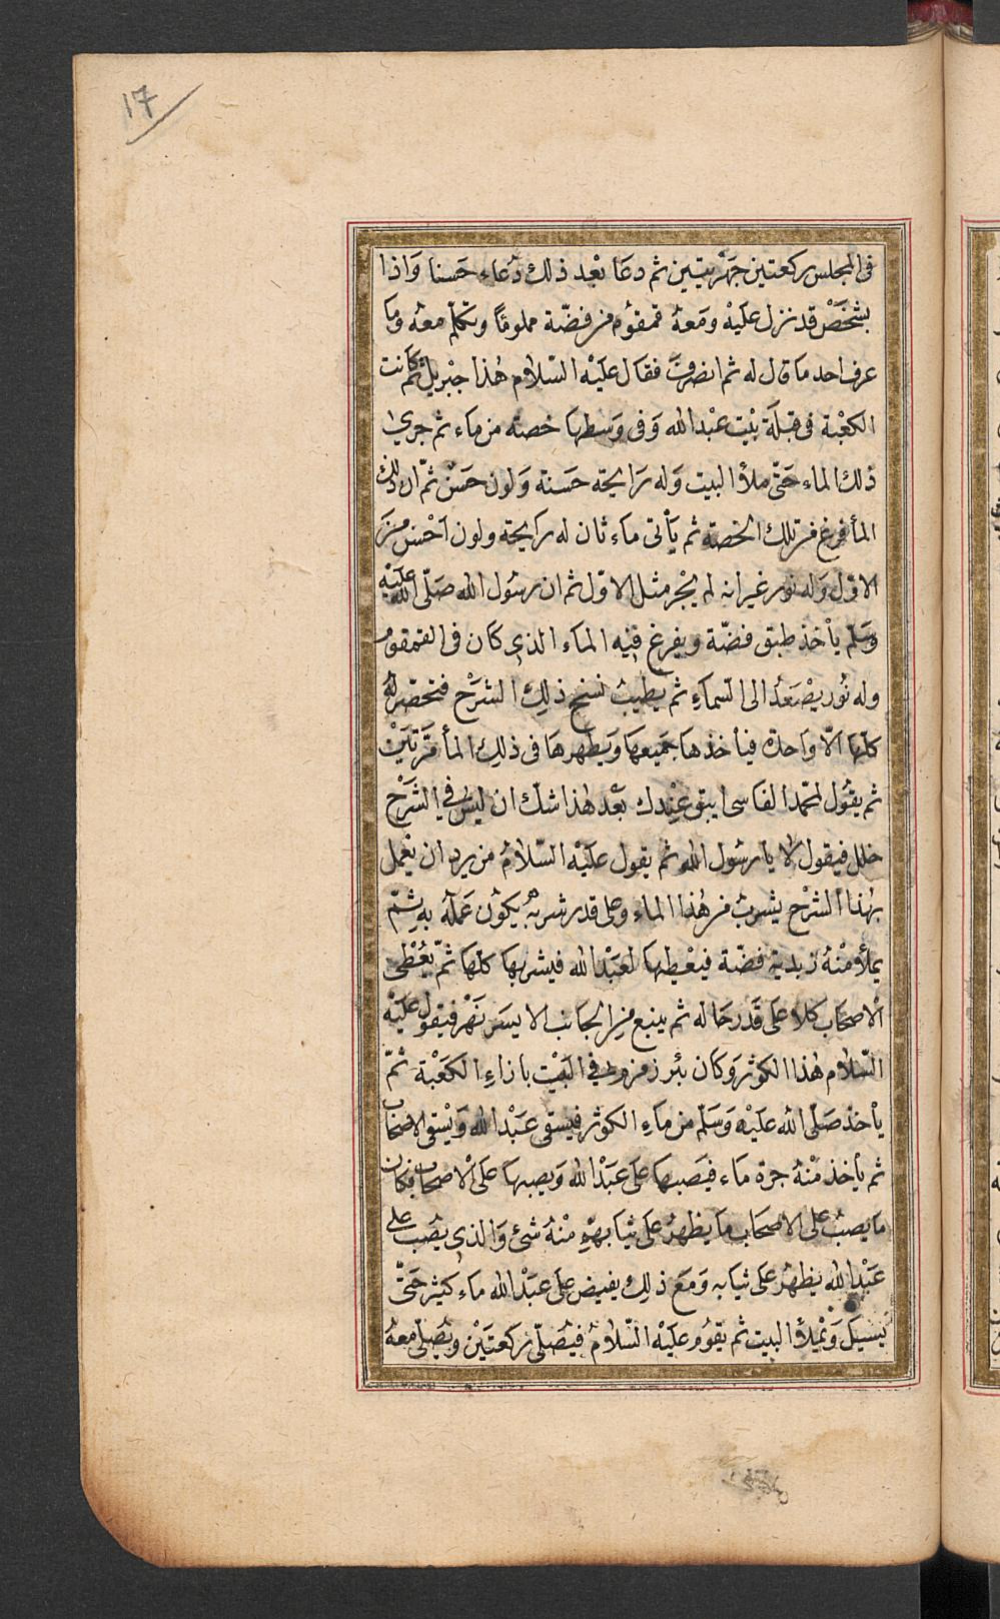 17
فى المجلس ركعتين جهريتين ثم دعَا بعْد ذلك دُعَاء حَسنا وَاذا
بشَخَصْ قد نزل عليْه ومَعهُ قمقوم من فضّة مملومًا وتكلم معه وما
عرف احد ما قال له ثم انصرفَ فقال عليْه السّلام هٰذا جبْريل ثم كانت
الكعْبة فى قبلَة بيْت عبْد الله وَفى وَسطها خصته من مَاء ثم جرىٰ
ذلك الماء حَتّى ملأ البيت وَله رَايحة حَسنة وَلون حَسَن ثمّ ان ذلك
المأ فرغ من تلك الخصة ثم يَأتى مَاء ثان له رَايحة ولون احْسن من
الاوّل وَله نور غير انه لم يجْر مثل الاوّل ثم ان رسُول الله صَلّى الله عليْه
وسَلّم يأخذ طبق فضّة ويفرغ فيْه الماء الذى كان فى القمقوم
وله نُور يصْعَدُ الى السّماءِ ثم يطيبُ نسخ ذلِك الشَرْح فتحضر لهُ
كلّها الّا وَاحدة فيأخذها جَميعهَا وَيطهرهَا فى ذلِك المأ مَرّتيَنْ
ثم يقُول لمحّمد الفاسى ايبقى عِندك بعْد هٰذا شك ان ليسَ فى الشَرْح
خلل فيقول لا يا رسُول الله ثم يقول عليْه السّلامُ من يرد ان يعْمل
بهٰذا الشَرْح يشْربُ من هٰذا الماء وعلى قدر شربهُ يكون عَمله به ثمّ
يملأ منْهُ زبدية فضّة فيعْطيها لعَبْد الله فيشربها كلّها ثمّ يُعْطى
الْاصحَاب كلا على قَدر حَاله ثم ينبع من الجَانب الايسَر نَهْر فيقول عليْه
السّلام هٰذا الكوثر وَكان بئر زمزم فى البَيْت بازاءِ الكعْبة ثمّ
يأخذ صَلّى الله عليْه وَسَلّم من مَاءِ الكوثر فيسقى عَبْد الله وَيسْقى الاصحَاب
ثم يأخذ منْهُ جرة مَاء فيَصبها على عَبْد الله وَيصبهَا عَلى الْاصحَاب فكان
مَا يصبُ على الاصحَاب مَا يظهرُ عَلى ثيَابهمْ منْهُ شئ وَالذى يصُب على
عَبْد الله يظهرُ عَلى ثيَابه وَمَع ذلِك يفيض على عبَدْ الله مَاء كثير حَتّى
يَسيَل وَيمْلأ البيت ثم يقوم عليْه السّلامُ فيُصَلّى ركعتَيْن ويُصَلّى معهُ